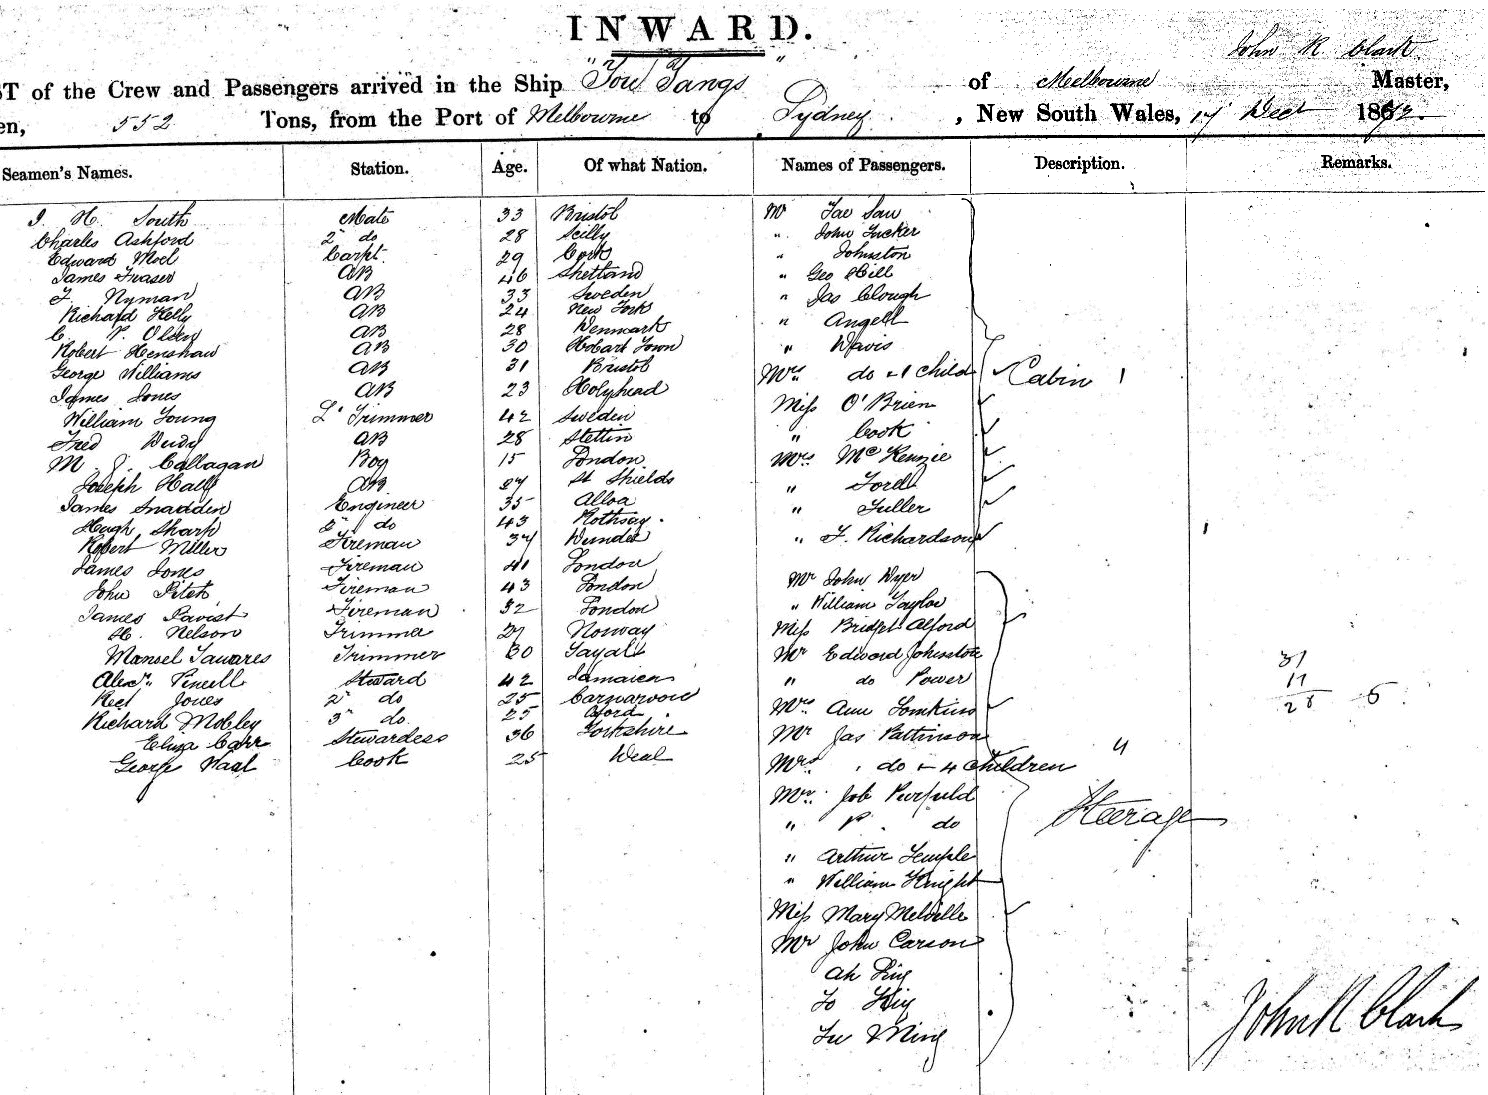 INWARD.
John R Clark
ST of the Crew and Passengers arrived in the Ship "You Yangs" of Melbourne Master,
en, 552 Tons, from the Port of Melbourne to Sydney, New South Wales, 17 Dect 1872
Seamen's Names. Station. Age. Of what Nation. Names of Passengers. Description. Remarks.
J. H. South Mate 33 Bristol Mr
Charles Ashford 2" do 28 Scilly " John Tucker
Edward Carpt. 29 Cork " Johnston
James Fraser AB 46 Shetland " Geo Hill
F. Nyman AB 33 Sweden " Jas Clough
Richard Kelly AB 24 New York " Angell
C. P. Olsen AB 28 Denmark " Davis
Robert Henshaw AB 30 Hobart Town
George Williams AB 31 Bristol Mrs do & 1 Child Cabin 1
James Jones AB 23 Holyhead Miss O'Brien
William Young L. Trimmer 42 Sweden
Fred AB 28 Stettin " Cook
M. J. Callagan Boy 15 London Mrs McKenzie
Joseph Hall AB 27 St Shields " Ford
James Snadden Engineer 35 Alloa " Fuller
Hugh Sharp 2" do 43 Rothsay.
Robert Miller Fireman 37 Dundee " F. Richardson
James Jones Fireman 41 London
John Fireman 43 London Mr John Dyer
James Fireman 32 London " William Taylor
H. Nelson Trimmer 27 Norway Miss Bridget Alford
Manoel Tavares Trimmer 30 Fayal Mr Edward Johnston 31
Alexr. Steward 42 Jamaica " do Power 11
Jones 2" do 25 Carnarvon Mrs Ann Tomkins 5
Richard Mobley 3" do. 25
Eliza Carr Stewardess 36 Yorkshire Mr Jas Pattinson
George Cook 25 Deal Mrs do & 4 Children 4
Mr. Job
" P. do Steerage
" Arthur Temple
" William Knight
Miss Mary Melville
Mr John Carson
Ah
John R Clark
Ming